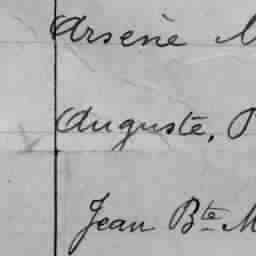 Arsène M
Auguste, P
Jean Bte M